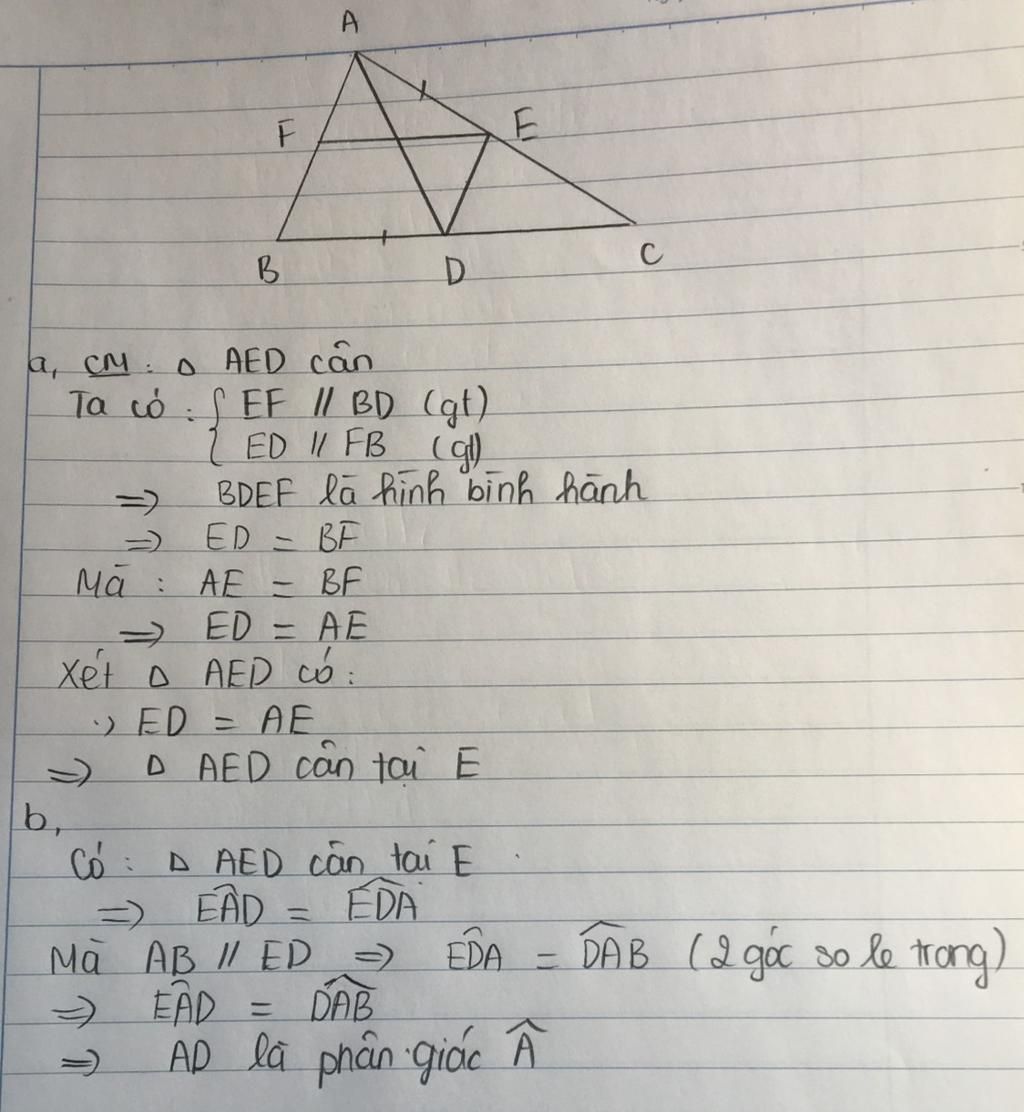 A
F
E
B
D
C
a, CM : Δ AED cân
Ta có : { EF // BD (gt)
ED // FB (gt)
=> BDEF là hình bình hành
=> ED = BF
Mà : AE = BF
=> ED = AE
Xét Δ AED có :
·) ED = AE
=> Δ AED cân tại E
b,
Có : Δ AED cân tại E
=> EÂD = \widehat{EDA}
Mà AB // ED => \widehat{EDA} = \widehat{DAB} (2 góc so le trong)
=> EÂD = \widehat{DAB}
=> AD là phân giác Â